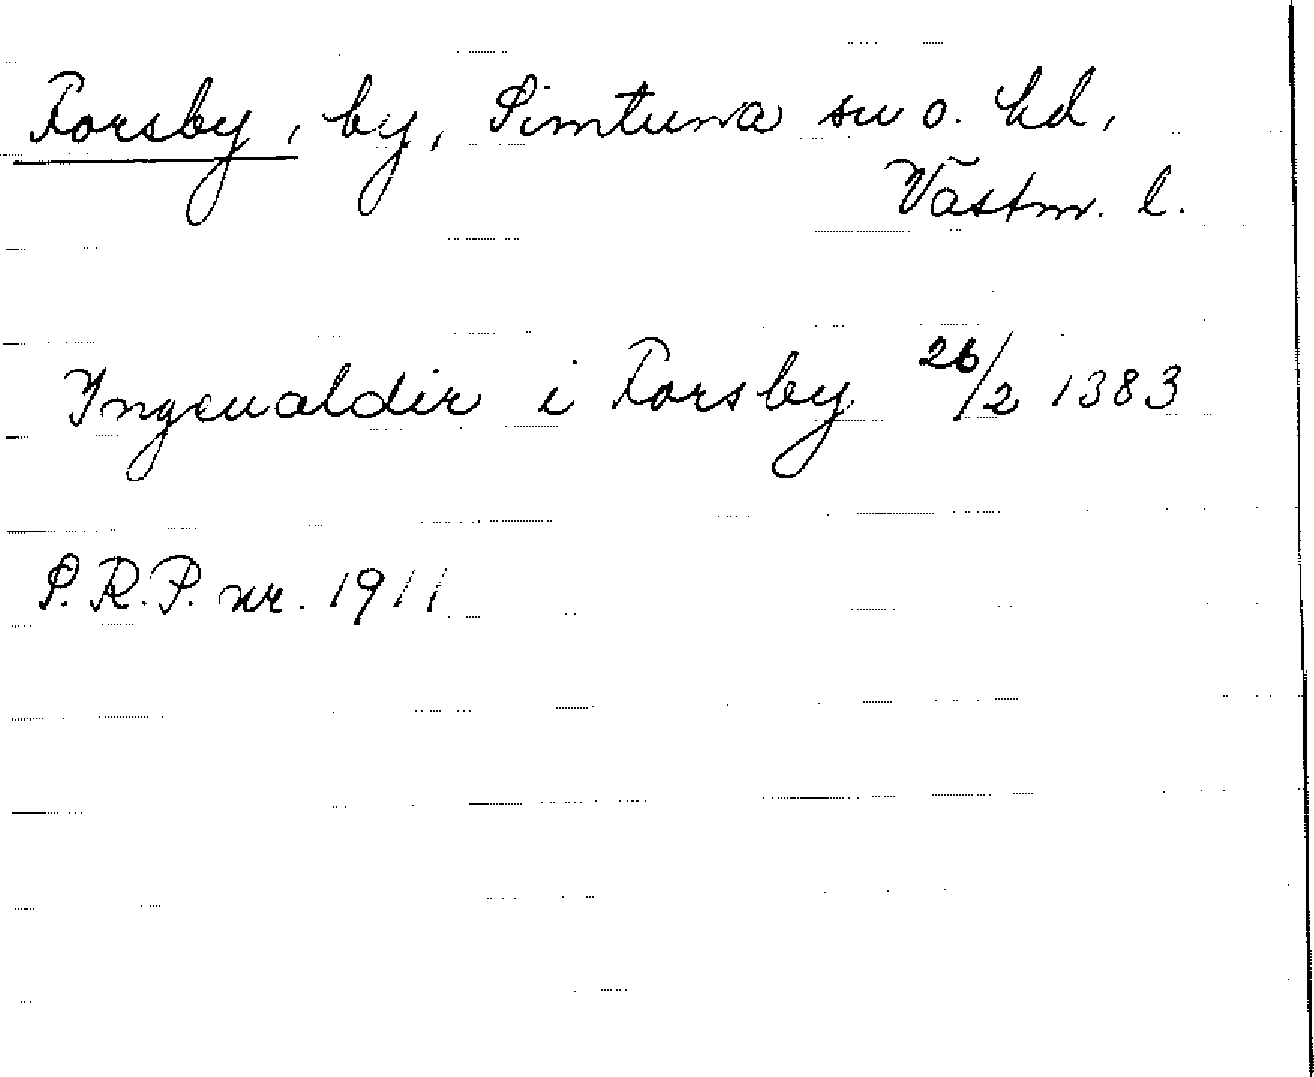 Forsby, by, Simtuna sn o. hd,
Västm. l.
Ingeualdir i Forsby 26/2 1383
S.R.P. nr. 1911